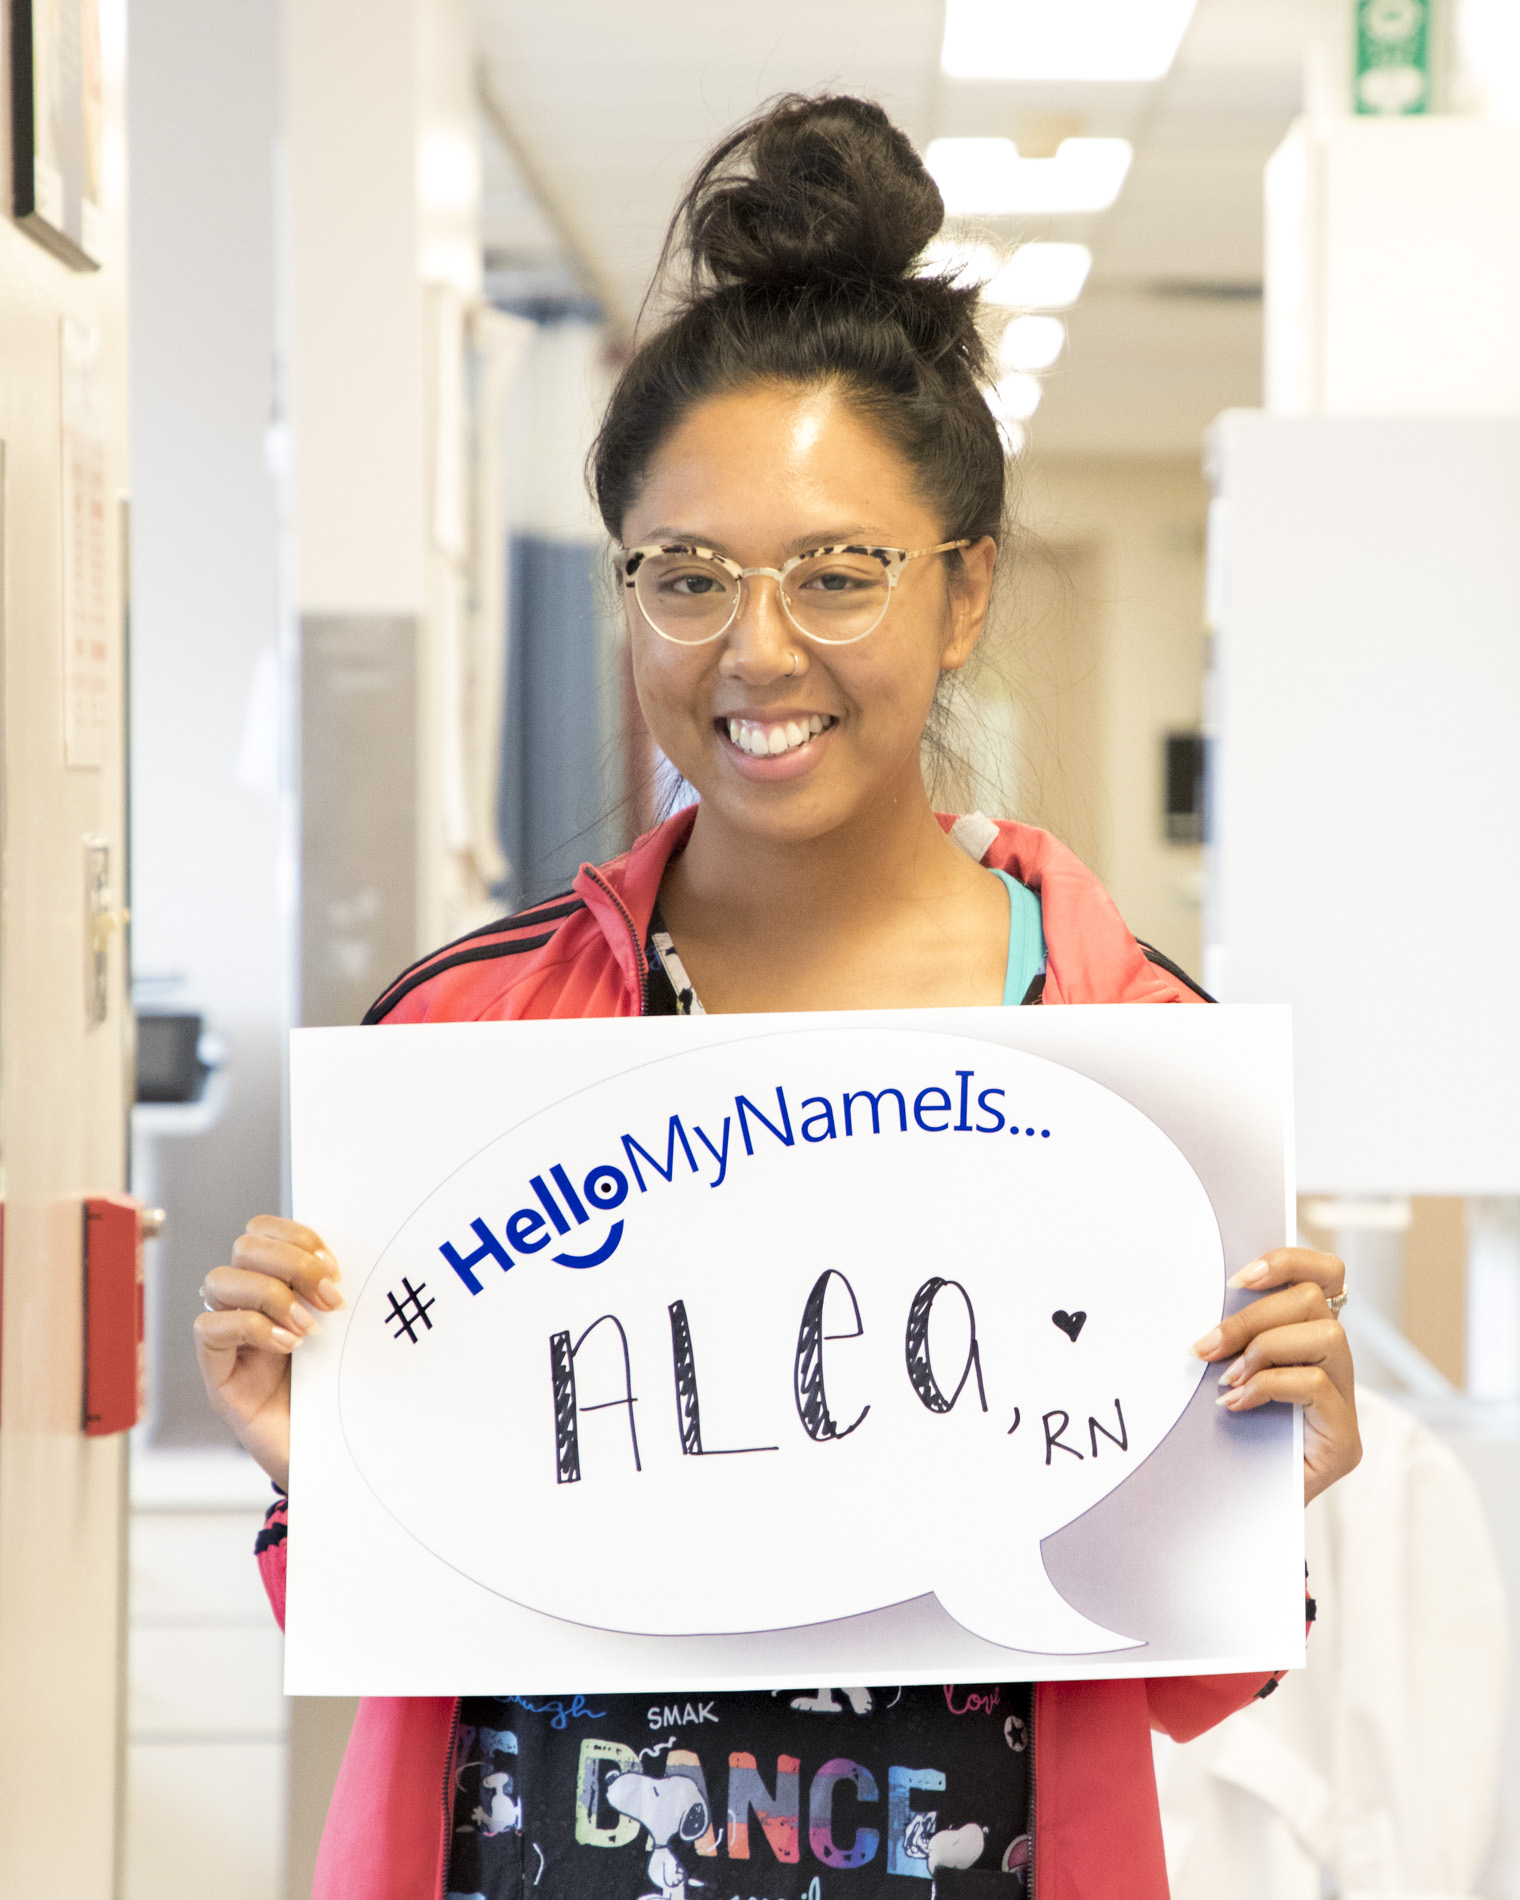 #HelloMyNameIs...
ALea, RN
SMAK
love
DANCE